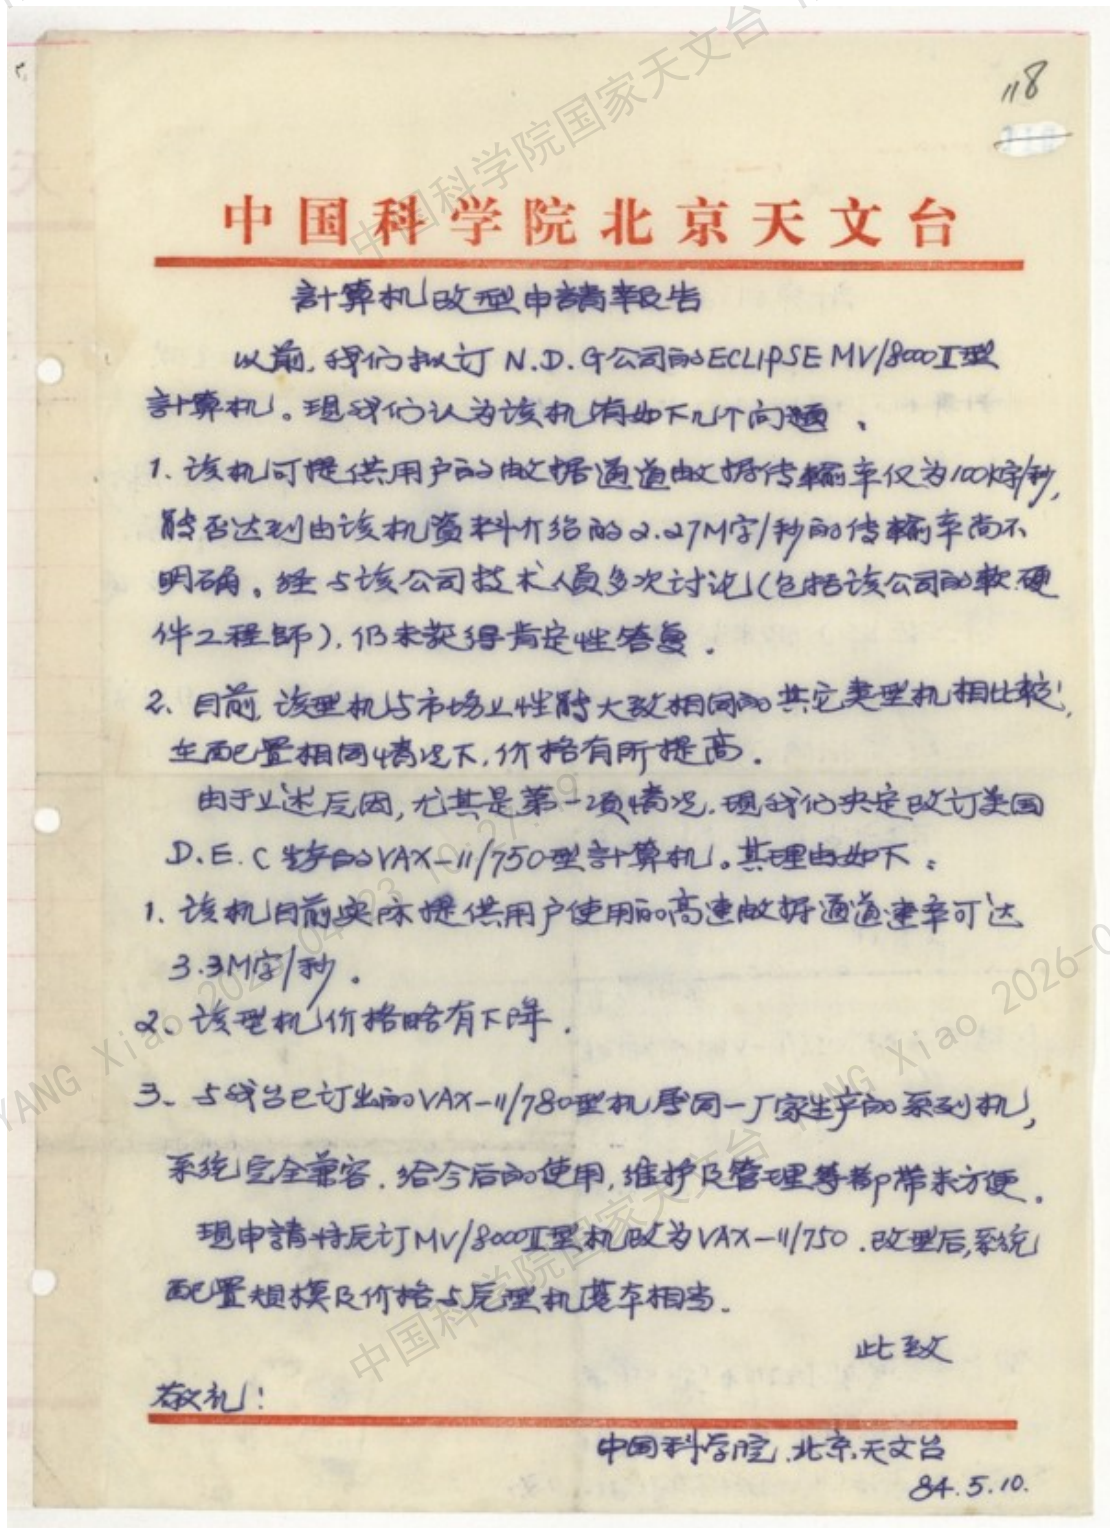 118
中国科学院北京天文台
計算机改型申請報告
以前,我们拟订 N.D.G公司的ECLIPSE MV/8000Ⅱ型
計算机。現我们认为该机有如下几个问题、
1. 该机可提供用户的数据通道数据传輸率仅为100K字/秒,
能否达到由该机資料介绍的2.27M字/秒的传輸率尚不
明确。经与该公司技术人员多次讨论(包括该公司的軟.硬
件工程師),仍未获得肯定性答复.
2、目前,该型机与市场上性能大致相同的其它类型机相比較,
在配置相同情况下,价格有所提高.
由于上述原因,尤其是第一项情况.現我们决定改订美国
D.E.C 生产的VAX-11/750型計算机。其理由如下:
1. 该机目前实际提供用户使用的高速数据通道速率可达
3.3M字/秒.
2、该型机价格略有下降.
3、与我台已订出的VAX-11/780型机屬同一厂家生产的系列机,
系统完全兼容.给今后的使用,维护及管理等都带来方便.
現申請将原订MV/8000Ⅱ型机改为VAX-11/750.改型后,系统
配置规模及价格与原型机基本相当.
此致
敬礼!
中国科学院.北京.天文台
84.5.10.
中国科学院国家天文台
中国科学院国家天文台
YANG Xiao
YANG Xiao 2026-0